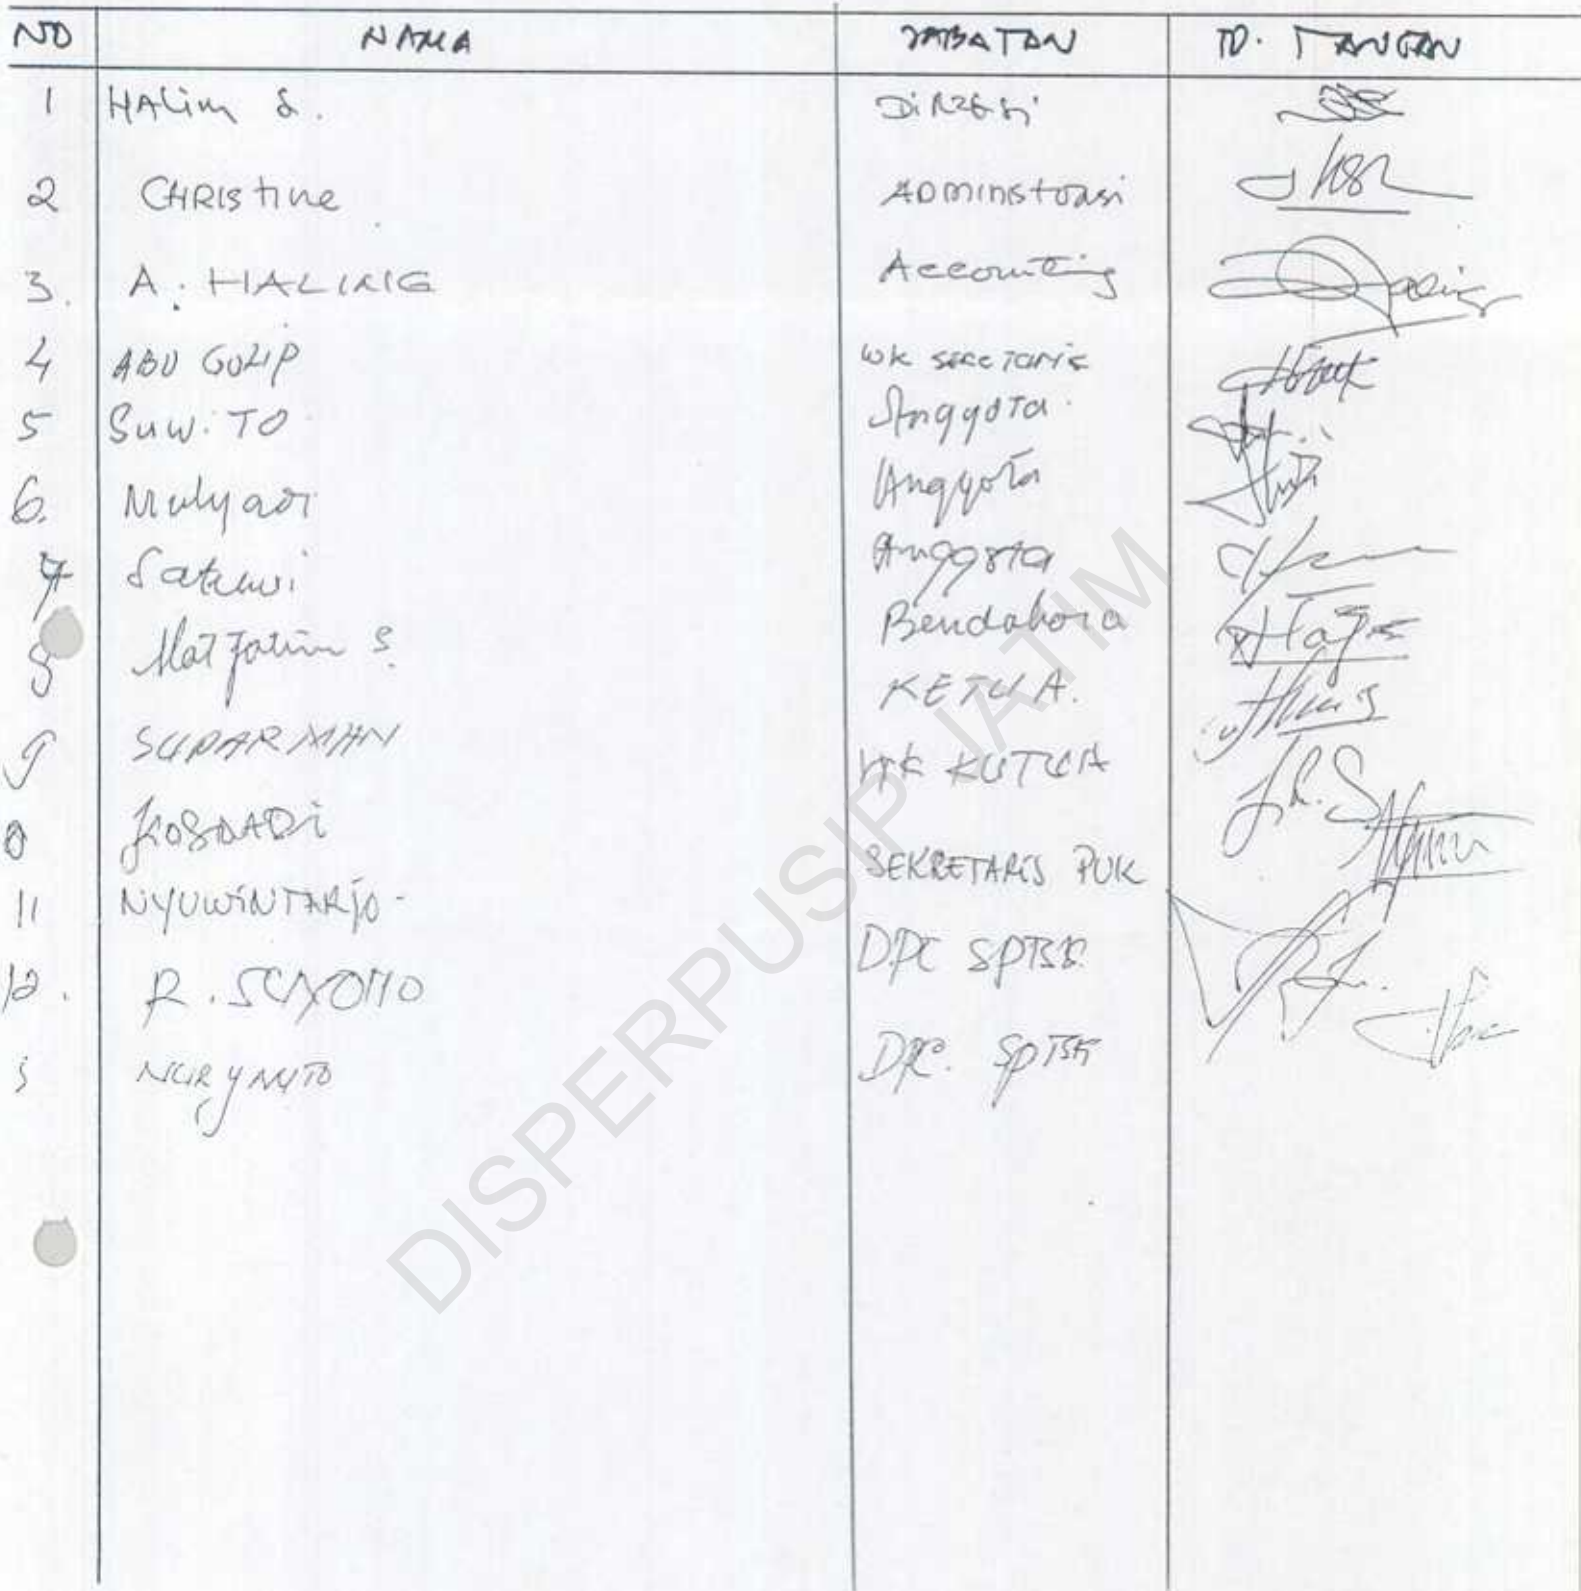 NO NAMA JABATAN TD. TANGAN
1 HALim S. DiREKSi
2 CHRIStine ADMINIStrasi
3. A. HALIKIG Accounting
4 ABU GOZIP wk secretaris
5 SuwiTO Anggota
6. Mulyadi Anggota
7 Satuwi Anggota
8 Mat Jatim S. Bendahara
9 SUPARMAN KETUA.
0 KOSNADi WK KUTUA
11 NYUWiNTARjO - SEKRETARIS PUK
12. R. SUYOTTO DPC SPTSK
3 NURyANTO DPC. SPTSK
DISPERPUSIP JATIM